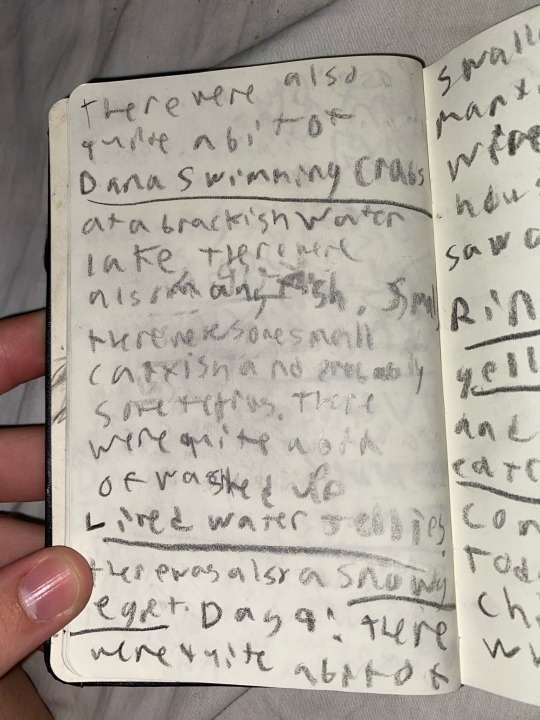 there were also
quite a bit of
Dana Swimming Crabs
at a brackish water
lake. There were
also many fish.
there were some small
catfish and probably
some tetras. There
were quite a bit
of washed up
Lined water jellies.
there was also a snowy
eget. Day 9: There
were quite a bit of
small
were
saw
Rin
yell
and
con
Tod
ch